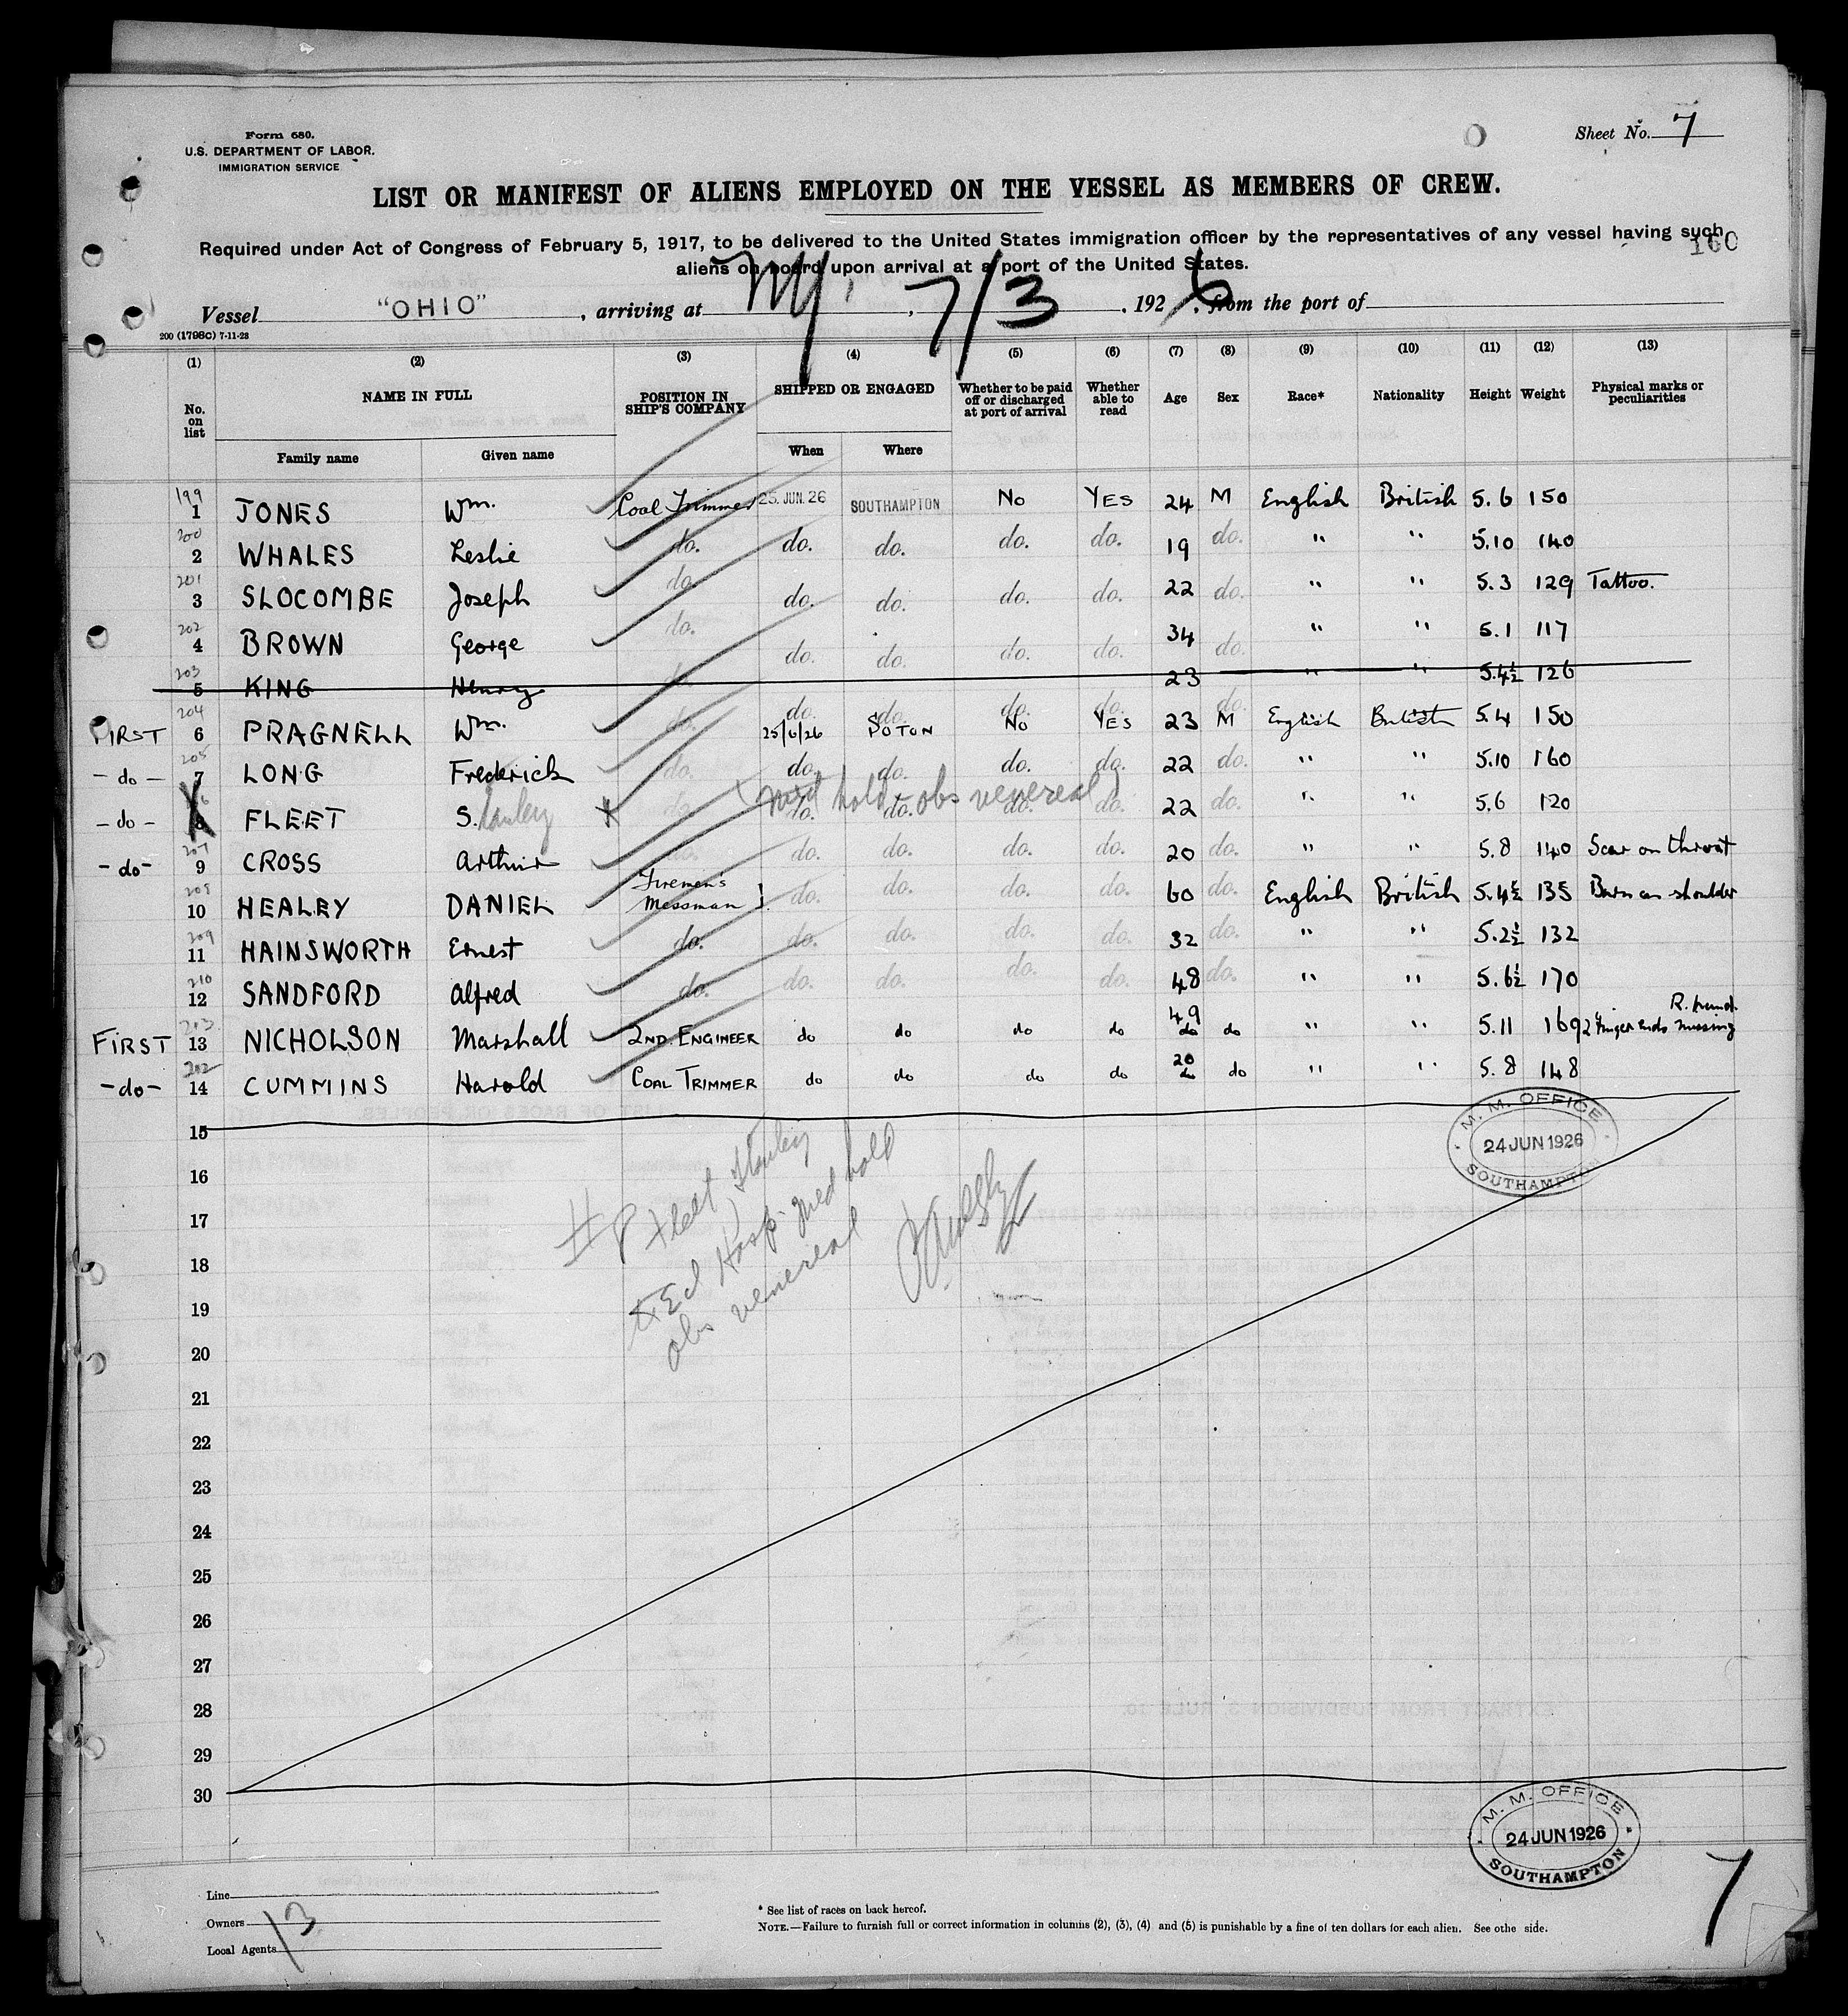 Form 680.
U.S. DEPARTMENT OF LABOR.
IMMIGRATION SERVICE
Sheet No. 7
LIST OR MANIFEST OF ALIENS EMPLOYED ON THE VESSEL AS MEMBERS OF CREW.
Required under Act of Congress of February 5, 1917, to be delivered to the United States immigration officer by the representatives of any vessel having such
160
aliens on board upon arrival at a port of the United States.
Vessel "OHIO", arriving at NY, 7/3, 1926, from the port of
200 (1798C) 7-11-23
(1) (2) (3) (4) (5) (6) (7) (8) (9) (10) (11) (12) (13)
No. on list NAME IN FULL POSITION IN SHIP'S COMPANY SHIPPED OR ENGAGED Whether to be paid off or discharged at port of arrival Whether able to read Age Sex Race* Nationality Height Weight Physical marks or peculiarities
Family name Given name When Where
199 1 JONES Wm. Coal Trimmer 25. JUN. 26 SOUTHAMPTON No YES 24 M English British 5.6 150
200 2 WHALES Leslie do. do. do. do. do. 19 do. " " 5.10 140
201 3 SLOCOMBE Joseph do. do. do. do. do. 22 do. " " 5.3 129 Tattoo.
202 4 BROWN George do. do. do. do. do. 34 do. " " 5.1 117
203 5 KING Henry do. do. do. do. do. 23 do. " " 5.4½ 126
FIRST 204 6 PRAGNELL Wm. do. 25/6/26 SOTON No YES 23 M English British 5.4 150
- do - 205 7 LONG Frederick do. do. do. do. do. 22 do. " " 5.10 160
(med hold - obs venereal)
- do - 8 FLEET Stanley do. do. do. do. do. 22 do. " " 5.6 120
- do - 207 9 CROSS Arthur do. do. do. do. do. 20 do. " " 5.8 140 Scar on throat
208 10 HEALEY DANIEL Firemen's Messman do. do. do. do. 60 do. English British 5.4½ 135 Burn on shoulder
209 11 HAINSWORTH Ernest do. do. do. do. do. 32 do. " " 5.2½ 132
210 12 SANDFORD Alfred do. do. do. do. do. 48 do. " " 5.6½ 170
FIRST 213 13 NICHOLSON Marshall 2ND. ENGINEER do do do do 49 do do " " 5.11 169 2 finger ends missing R. hand.
- do - 202 14 CUMMINS Harold COAL TRIMMER do do do do 20 do do " " 5.8 148
15
M. M. OFFICE
24 JUN 1926
SOUTHAMPTON
16
# 8 Fleet, Stanley
17
Hosp. med hold
18
obs venereal
19
20
21
22
23
24
25
26
27
28
29
30
M. M. OFFICE
24 JUN 1926
SOUTHAMPTON
Line
Owners
Local Agents
13
* See list of races on back hereof.
NOTE.—Failure to furnish full or correct information in columns (2), (3), (4) and (5) is punishable by a fine of ten dollars for each alien. See othe side.
7